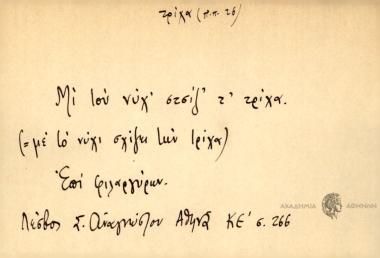 τρίχα (π.π. 26)
Μὶ τοὺ νύχ' στσίζ' τ' τρίχα.
(= μὲ τὸ νύχι σχίζει τὴν τρίχα)
Ἐπὶ φιλαργύρων.
Λέσβος Σ. Ἀναγνώστου Ἀθηνᾶ ΚΕ' σ. 266
ΑΚΑΔΗΜΙΑ ΑΘΗΝΩΝ